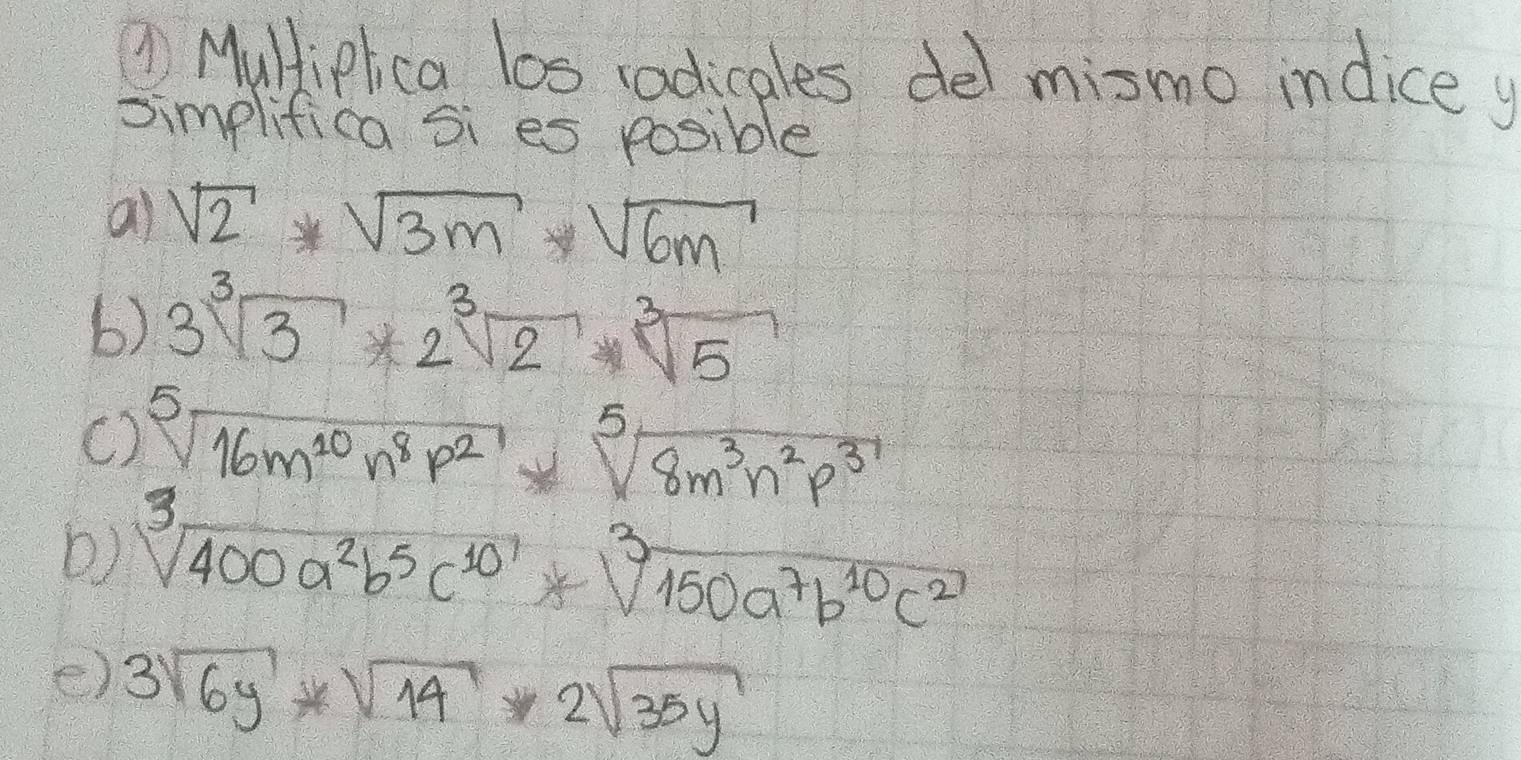 ① Multiplica los radicales del mismo indice y
simplifica si es posible
a) √2 * √3m * √6m
b) 3∛3 * 2∛2 * ∛5
c) ⁵√16m¹⁰n⁸p² * ⁵√8m³n²p³
D) ∛400a²b⁵c¹⁰ * ∛150a⁷b¹⁰c²
e) 3√6y * √14 * 2√35y